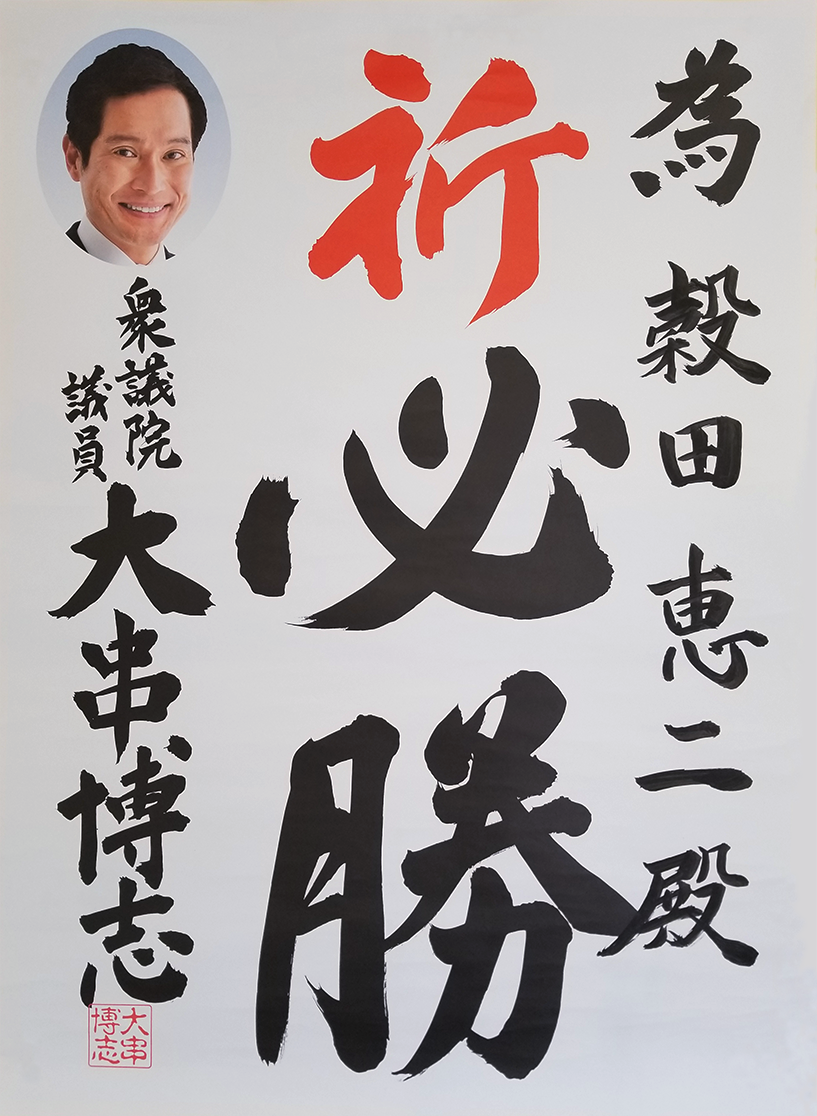 為 穀田 恵二 殿
祈必勝
衆議院
議員
大串博志
大串
博志